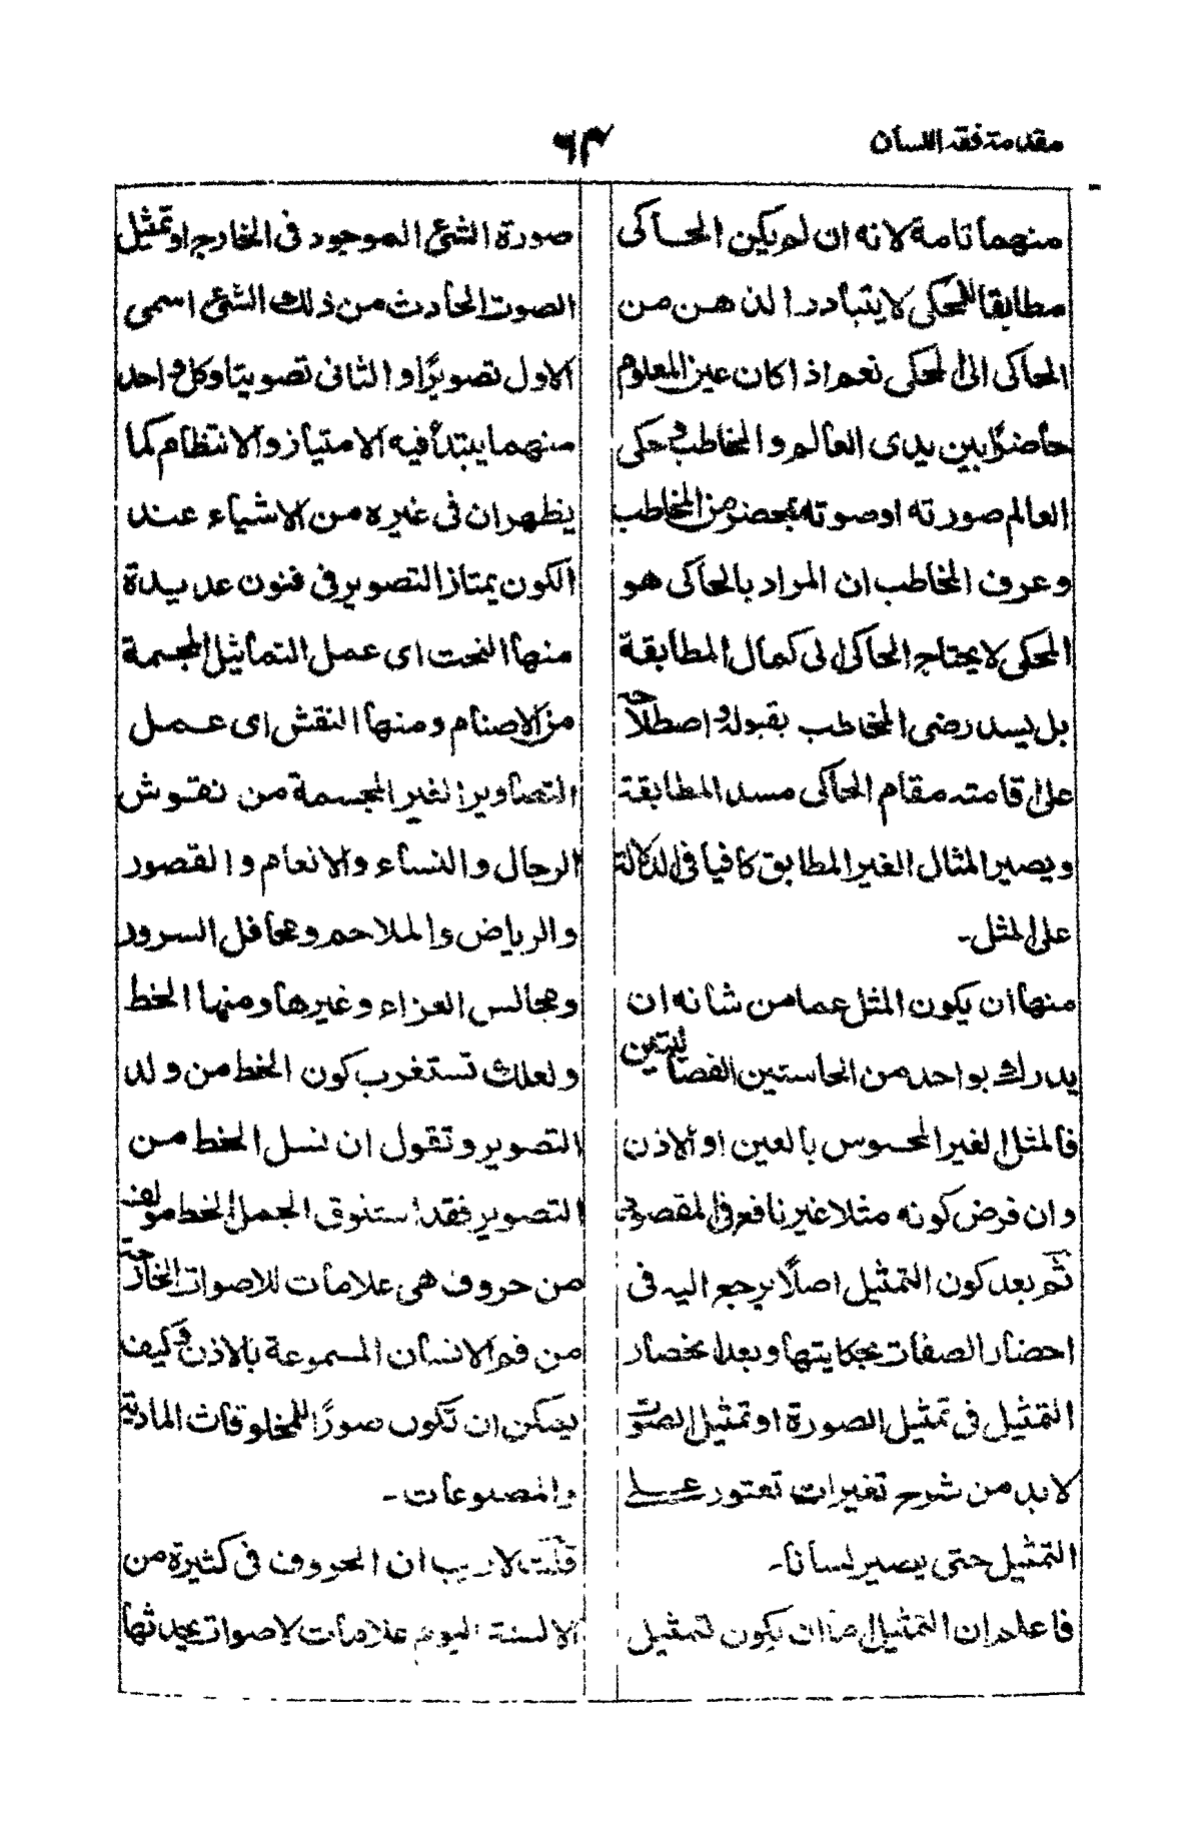 مقدمة فقه اللسان
٦٣
منهما تامة لانه ان لم يكن الحاكى
مطابقا للمحكى لا يتبادر الذهن من
الحاكى الى المحكى نعم اذا كان عين المعلوم
حاضرًا بين يدى العالم والمخاطب وحكى
العالم صورته او صوته بمحضر من المخاطب
وعرف المخاطب ان المراد بالحاكى هو
المحكى لا يحتاج الحاكى الى كمال المطابقة
بل يسد رضى المخاطب بقبوله واصطلاحه
على اقامته مقام الحاكى مسد المطابقة
ويصير المثال الغير المطابق كافيا فى الدلالة
على المثل۔
منها ان يكون المثل عما من شانه ان
يدرك بواحد من الحاستين الفضاليتين
فالمثل الغير المحسوس بالعين او الاذن
وان فرض كونه مثلا غير نافع فى المقصود
ثم بعد كون التمثيل اصلًا يرجع اليه فى
احضار الصفات بحكايتها وبعد انحصار
التمثيل فى تمثيل الصورة او تمثيل الصوت
لابد من شرح تغيرات تعتور على
التمثيل حتى يصير لسانا۔
فاعلم ان التمثيل اما ان يكون لتمثيل
صورة الشئ الموجود فى الخارج او تمثيل
الصوت الحادث من ذلك الشئ اسمى
الاول تصويرًا و الثانى تصويتا وكل واحد
منهما يبتدأ فيه الامتياز والانتظام كما
يظهران فى غيره من الاشياء عند
الكون يمتاز التصوير فى فنون عديدة
منها النحت اى عمل التماثيل المجسمة
من الاصنام ومنها النقش اى عمل
التصاوير الغير المجسمة من نقوش
الرجال والنساء والانعام والقصور
والرياض والملاحم ومحافل السرور
ومجالس العزاء وغيرها ومنها الخط
ولعلك تستغرب كون الخط من ولد
التصوير وتقول ان نسل الخط من
التصوير فقد استنوق الجمل الخط مولف
من حروف هى علامات للاصوات الخارجة
من فم الانسان المسموعة بالاذن وكيف
يمكن ان تكون صورًا للمخلوقات المادية
والمصنوعات۔
قلت لا ريب ان الحروف فى كثيرة من
الالسنة اليوم علامات لاصوات يحدثها